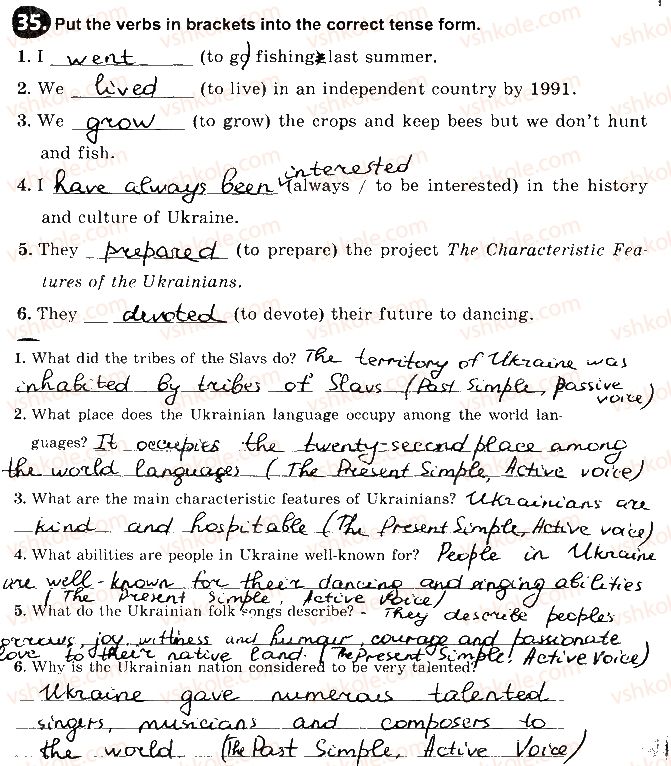 35. Put the verbs in brackets into the correct tense form.
1. I went (to go) fishing last summer.
2. We lived (to live) in an independent country by 1991.
3. We grow (to grow) the crops and keep bees but we don't hunt
and fish.
interested
4. I have always been (always / to be interested) in the history
and culture of Ukraine.
5. They prepared (to prepare) the project The Characteristic Fea-
tures of the Ukrainians.
6. They devoted (to devote) their future to dancing.
1. What did the tribes of the Slavs do? The territory of Ukraine was
inhabited by tribes of Slavs (Past Simple, passive
voice)
2. What place does the Ukrainian language occupy among the world lan-
guages? It occupies the twenty-second place among
the world languages (The Present Simple, Active voice)
3. What are the main characteristic features of Ukrainians? Ukrainians are
kind and hospitable (The Present Simple, Active voice)
4. What abilities are people in Ukraine well-known for? People in Ukraine
are well-known for their dancing and singing abilities
(The Present Simple, Active Voice)
5. What do the Ukrainian folk songs describe? - They describe people's
sorrows, joy, wittiness and humour, courage and passionate
love to their native land. (The present Simple, Active Voice)
6. Why is the Ukrainian nation considered to be very talented?
Ukraine gave numerous talented
singers, musicians and composers to
the world (The Past Simple, Active Voice)
vshkole.com